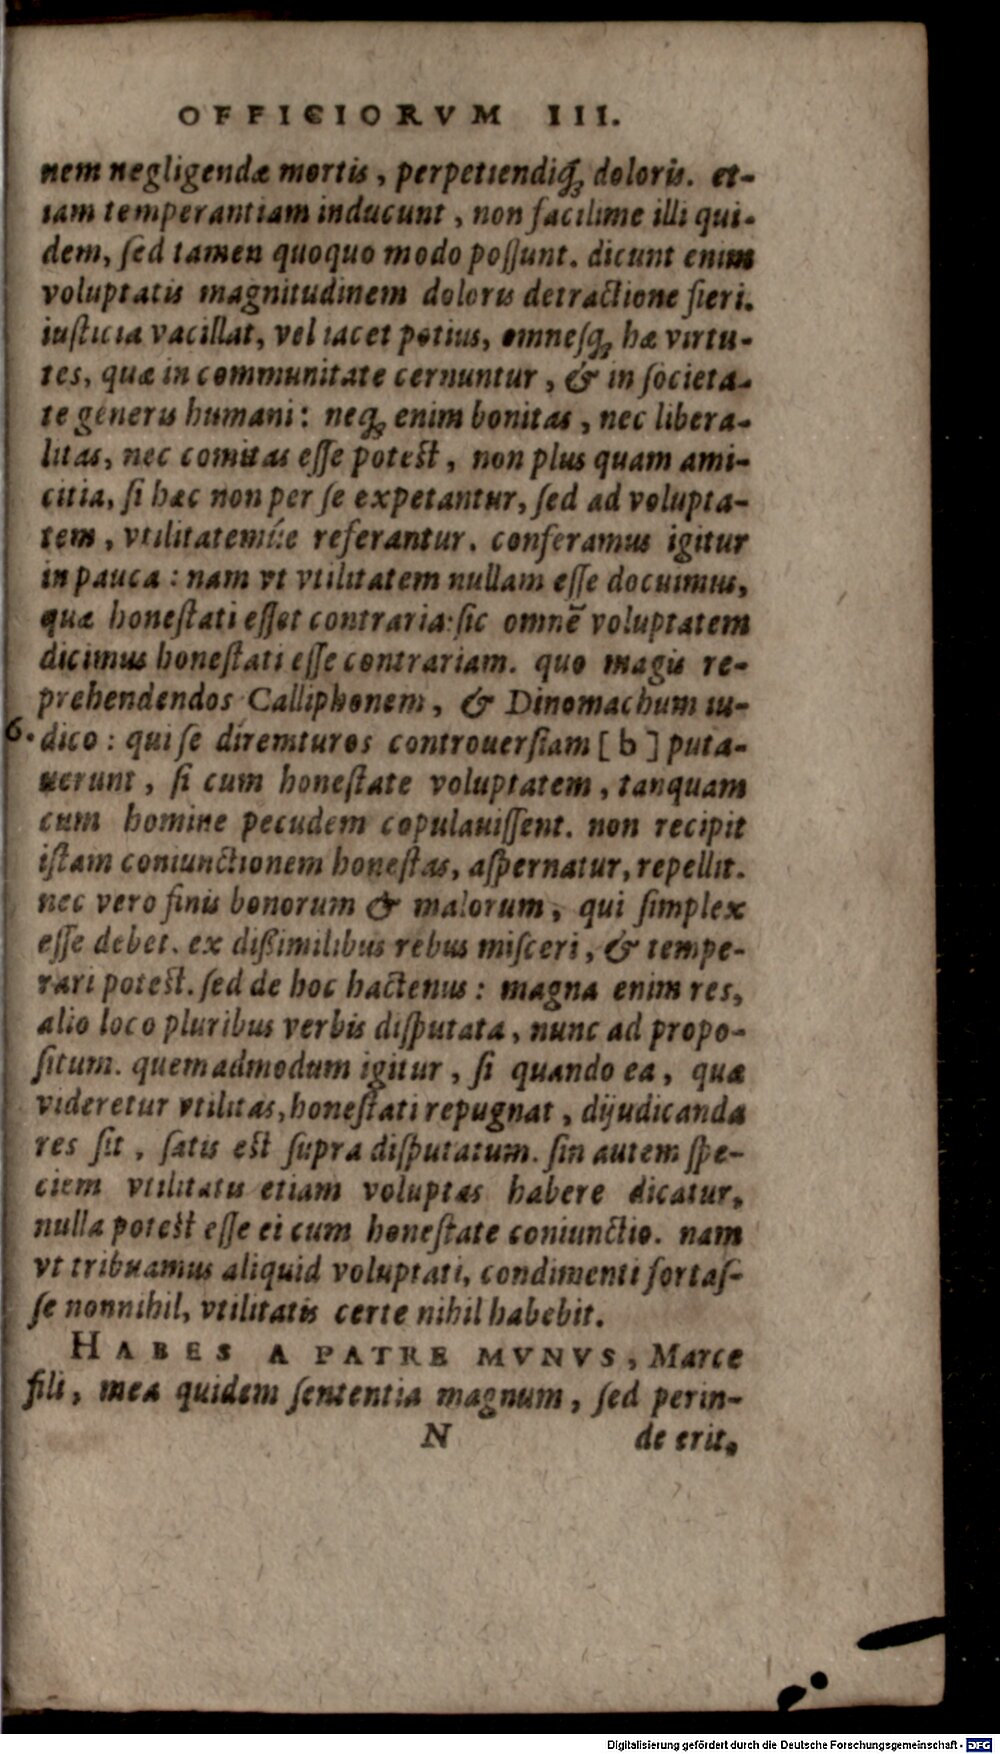 OFFICIORVM III.
nem negligendæ mortis, perpetiendiq́; doloris. et-
iam temperantiam inducunt, non facilime illi qui-
dem, ſed tamen quoquo modo poſſunt. dicunt enim
voluptatis magnitudinem doloris detractione fieri.
iuſticia vacillat, vel iacet potius, omneſq́; hæ virtu-
tes, quæ in communitate cernuntur, & in ſocieta-
te generis humani: neq́; enim bonitas, nec libera-
litas, nec comitas eſſe poteſt, non plus quam ami-
citia, ſi hæc non per ſe expetantur, ſed ad volupta-
tem, vtilitatemúe referantur. conferamus igitur
in pauca: nam vt vtilitatem nullam eſſe docuimus,
quæ honeſtati eſſet contraria: ſic omnē voluptatem
dicimus honeſtati eſſe contrariam. quo magis re-
prehendendos Calliphonem, & Dinomachum iu-
6. dico: qui ſe diremturos controuerſiam [b] puta-
uerunt, ſi cum honeſtate voluptatem, tanquam
cum homine pecudem copulauiſſent. non recipit
iſtam coniunctionem honeſtas, aſpernatur, repellit.
nec vero finis bonorum & malorum, qui ſimplex
eſſe debet. ex dißimilibus rebus miſceri, & tempe-
rari poteſt. ſed de hoc hactenus: magna enim res,
alio loco pluribus verbis diſputata, nunc ad propo-
ſitum. quemadmodum igitur, ſi quando ea, quæ
videretur vtilitas, honeſtati repugnat, dijudicanda
res ſit, ſatis eſt ſupra diſputatum. ſin autem ſpe-
ciem vtilitatis etiam voluptas habere dicatur,
nulla poteſt eſſe ei cum honeſtate coniunctio. nam
vt tribuamus aliquid voluptati, condimenti fortaſ-
ſe nonnihil, vtilitatis certe nihil habebit.
HABES A PATRE MVNVS, Marce
fili, mea quidem ſententia magnum, ſed perin-
N de erit,
Digitalisierung gefördert durch die Deutsche Forschungsgemeinschaft - DFG